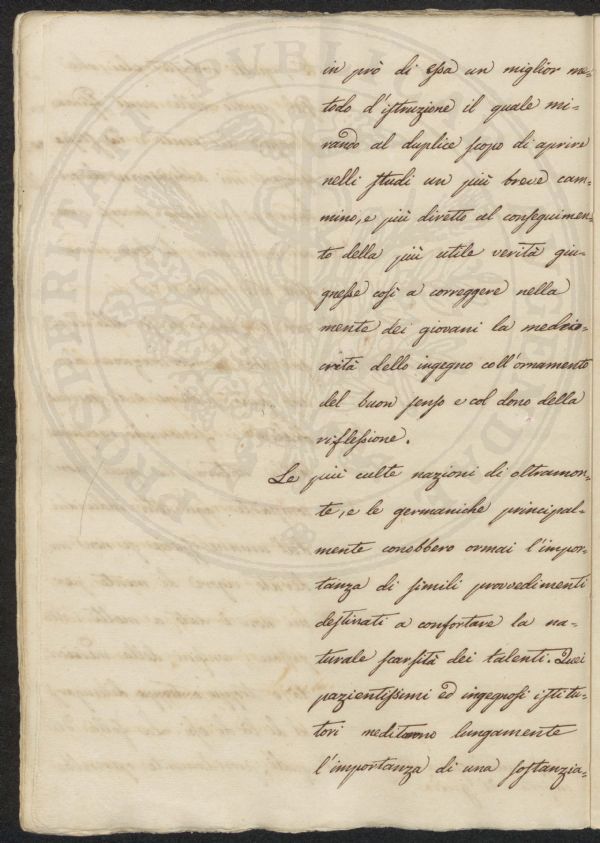 in prò di essa un miglior me-
todo d'istruzione il quale mi-
rando al duplice scopo di aprire
nelli studi un più breve cam-
mino, e più diretto al conseguimen-
to della più utile verità giu-
gnesse così a correggere nella
mente dei giovani la medio-
crità dello ingegno coll'ornamento
del buon senso e col dono della
riflessione.
Le più culte nazioni di oltramon-
te, e le germaniche principal-
mente conobbero ormai l'impor-
tanza di simili provvedimenti
destinati a confortare la na-
turale scarsità dei talenti. Quei
pazientissimi ed ingegnosi istitu-
tori meditarono lungamente
l'importanza di una sostanzia-